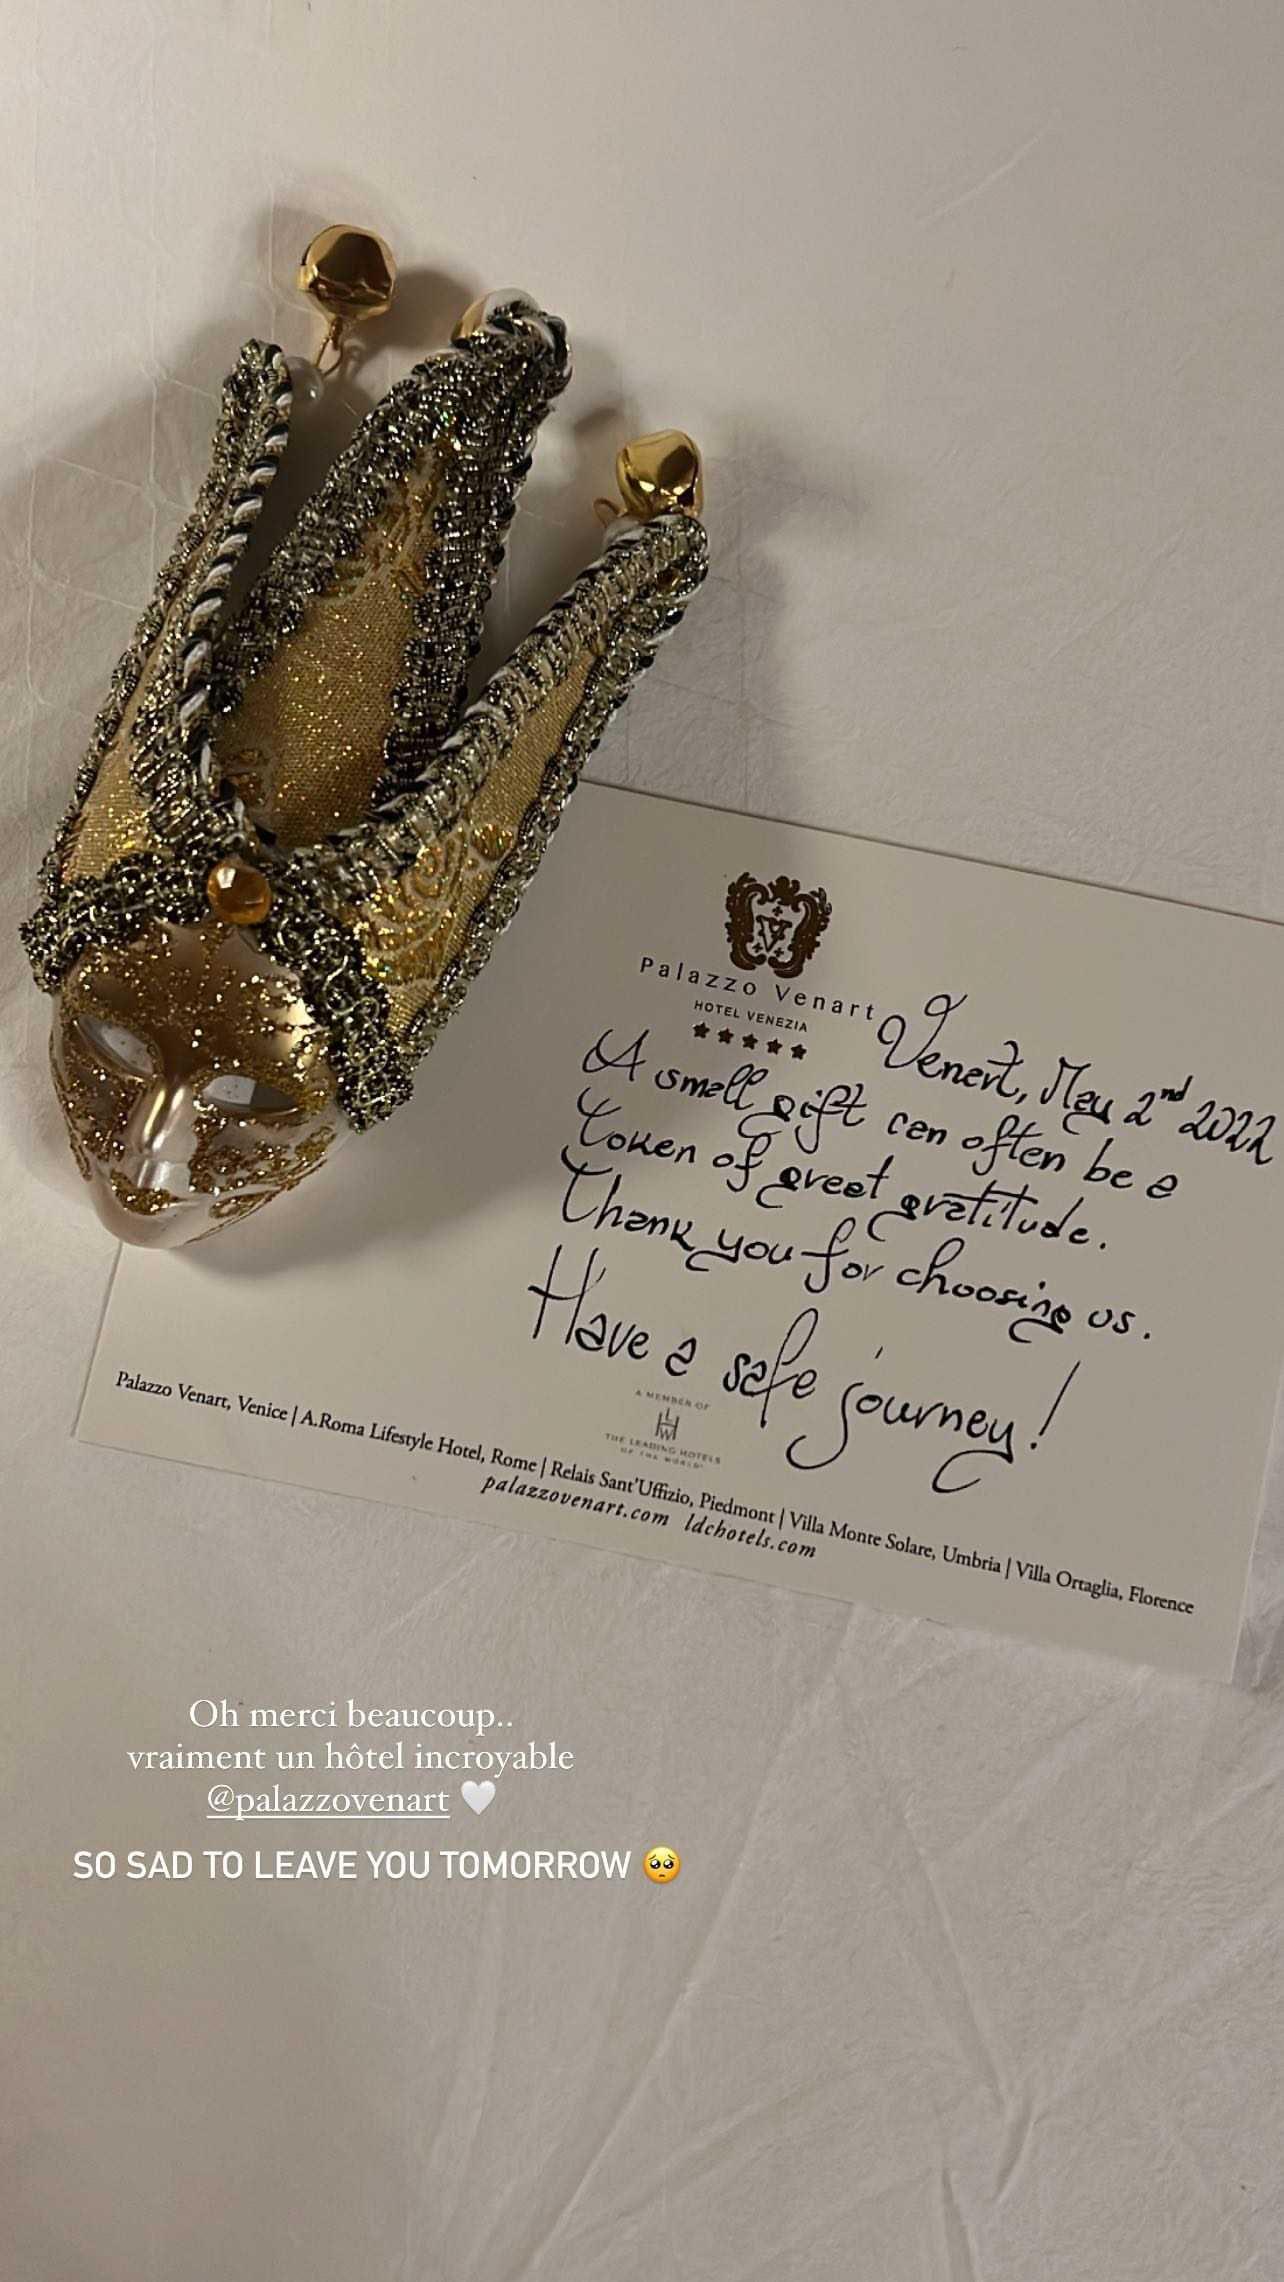 Palazzo Venart
HOTEL VENEZIA
Venart, May 2nd 2022
A small gift can often be a
token of great gratitude.
Thank you for choosing us.
Have a safe journey!
A MEMBER OF
LHW
THE LEADING HOTELS
OF THE WORLD
Palazzo Venart, Venice | A.Roma Lifestyle Hotel, Rome | Relais Sant'Uffizio, Piedmont | Villa Monte Solare, Umbria | Villa Ortaglia, Florence
palazzovenart.com ldchotels.com
Oh merci beaucoup..
vraiment un hôtel incroyable
@palazzovenart 🤍
SO SAD TO LEAVE YOU TOMORROW 🥺